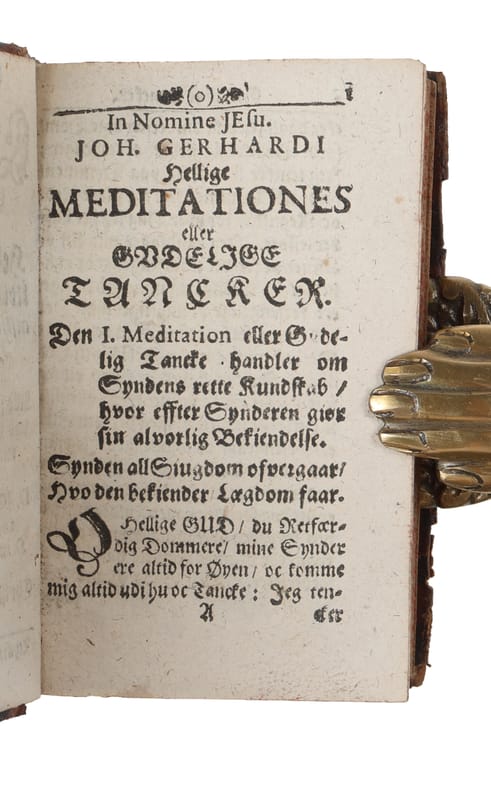 (o) 1
In Nomine JEsu.
JOH. GERHARDI
Hellige
MEDITATIONES
eller
GVDELIGE
TANCKER.
Den I. Meditation eller Gude-
lig Tancke handler om
Syndens rette Kundskab /
hvor effter Synderen giør
sin alvorlig Bekiendelse.
Synden all Siugdom ofvergaar/
Hvo den bekiender Lægdom faar.
O Hellige GUD / du Retfær-
dig Dommere/ mine Synder
ere altid for Øyen / oc komme
mig altid udi hu oc Tancke: Jeg ten-
A cker